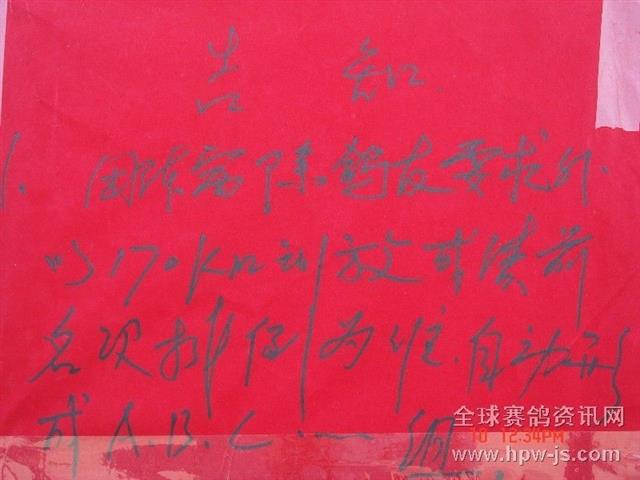 告 知
1. 团体需除鸽友要求外
以170Km训放成绩前
名次排列为准.自动形
成A.B.C.一组.
10 12:34PM
全球赛鸽资讯网
www.hpw-js.com